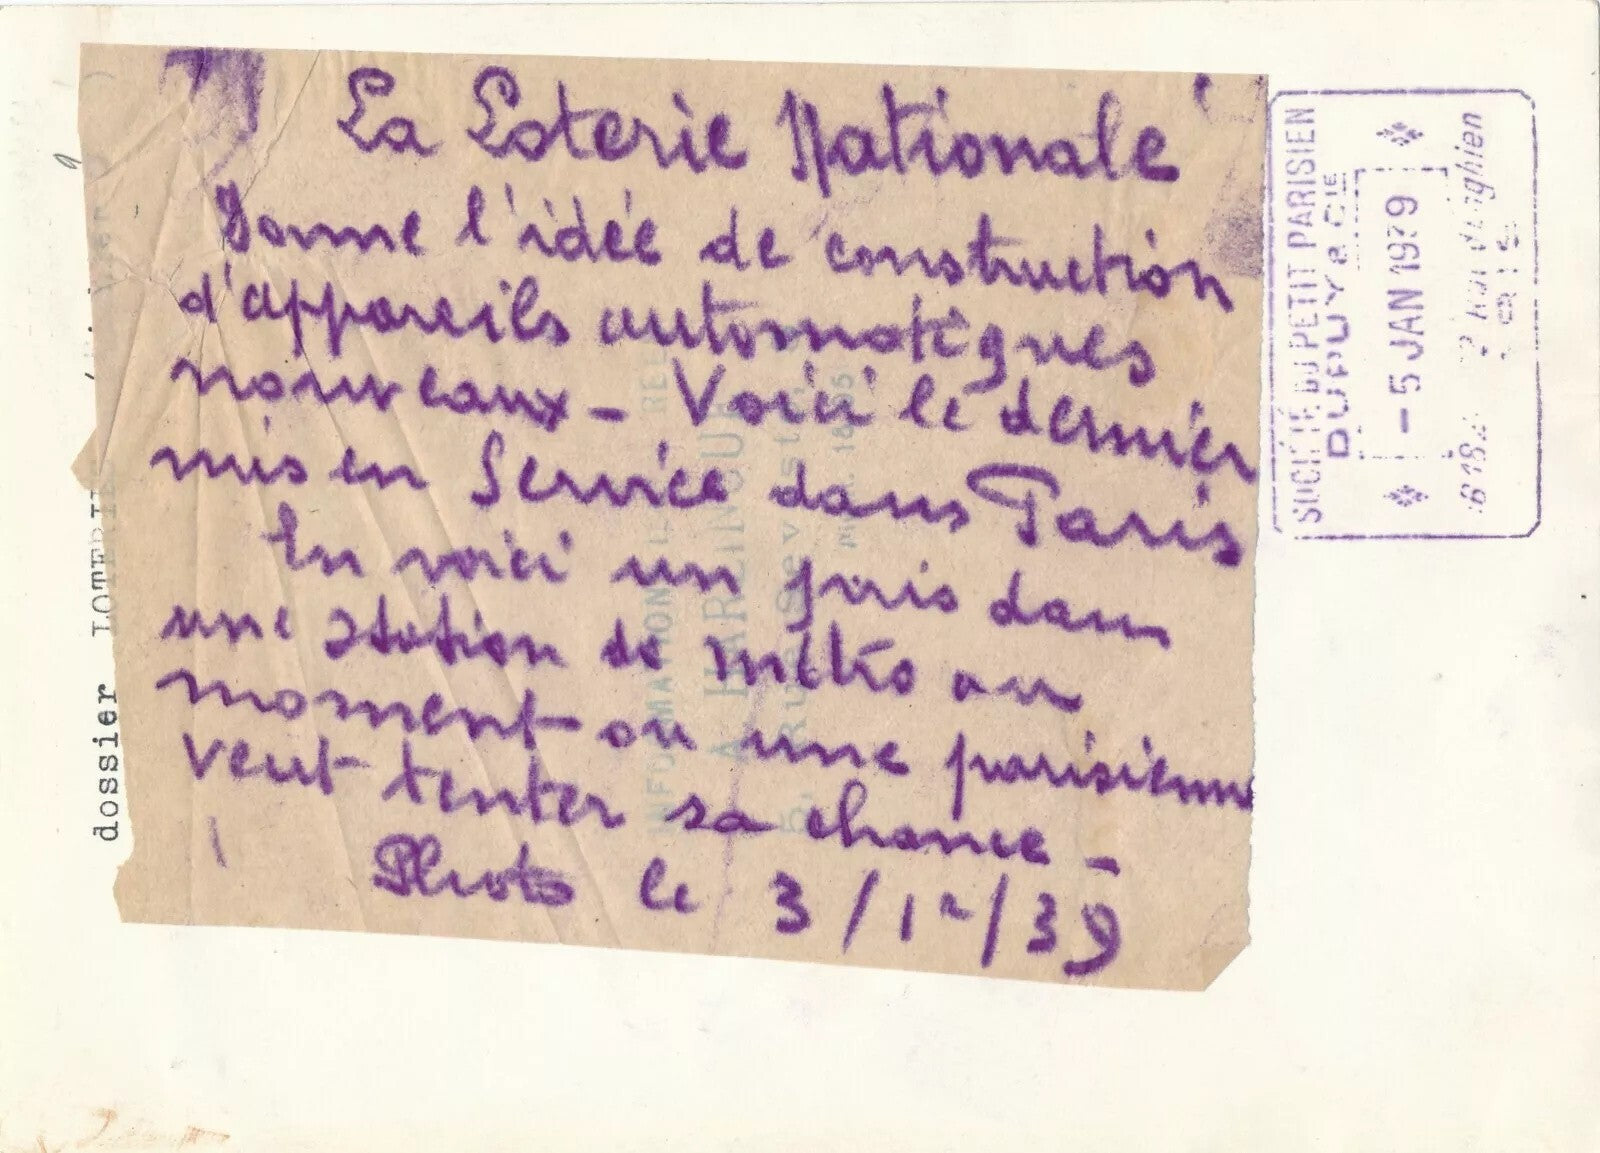 La Loterie Nationale
Donne l'idée de construction
d'appareils automatiques
nouveaux - Voici le dernier
mis en Service dans Paris
En voici un pris dans
une station de métro au
moment ou une parisienne
veut tenter sa chance -
Photo le 3/12/39
SOCIÉTÉ DU PETIT PARISIEN
DUPUY & CIE
- 5 JAN 1939
dossier LOTERIE
A HARLINGUE